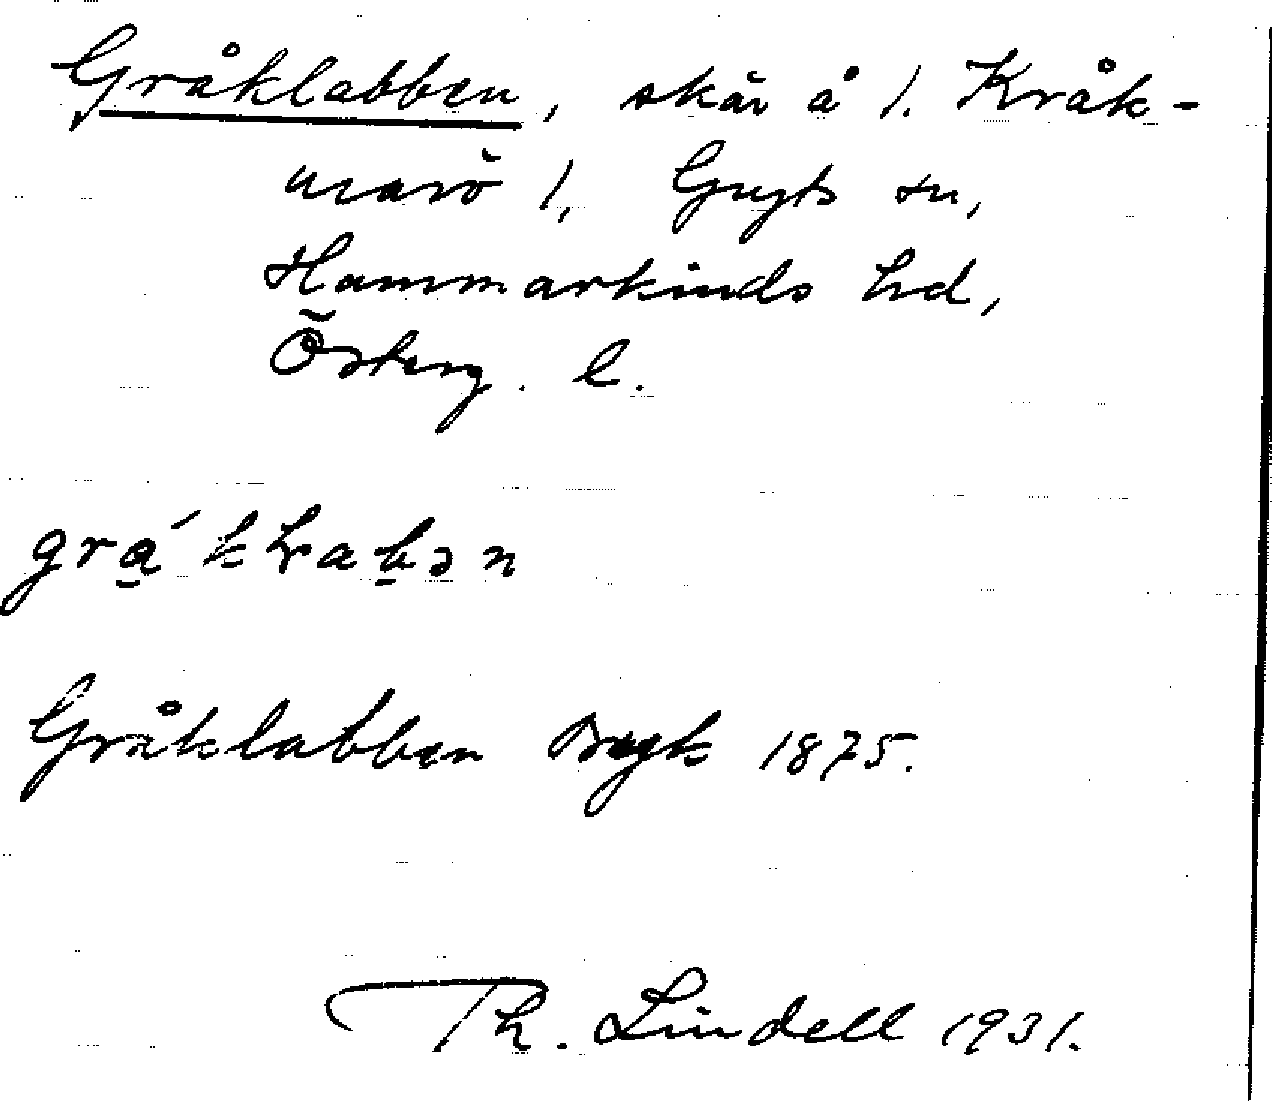 Gråklabben, skär å 1. Kråk-
marö 1, Gryts sn,
Hammarkinds hd,
Österg. l.
Gråklabben 1875.
Th. Lindell 1931.